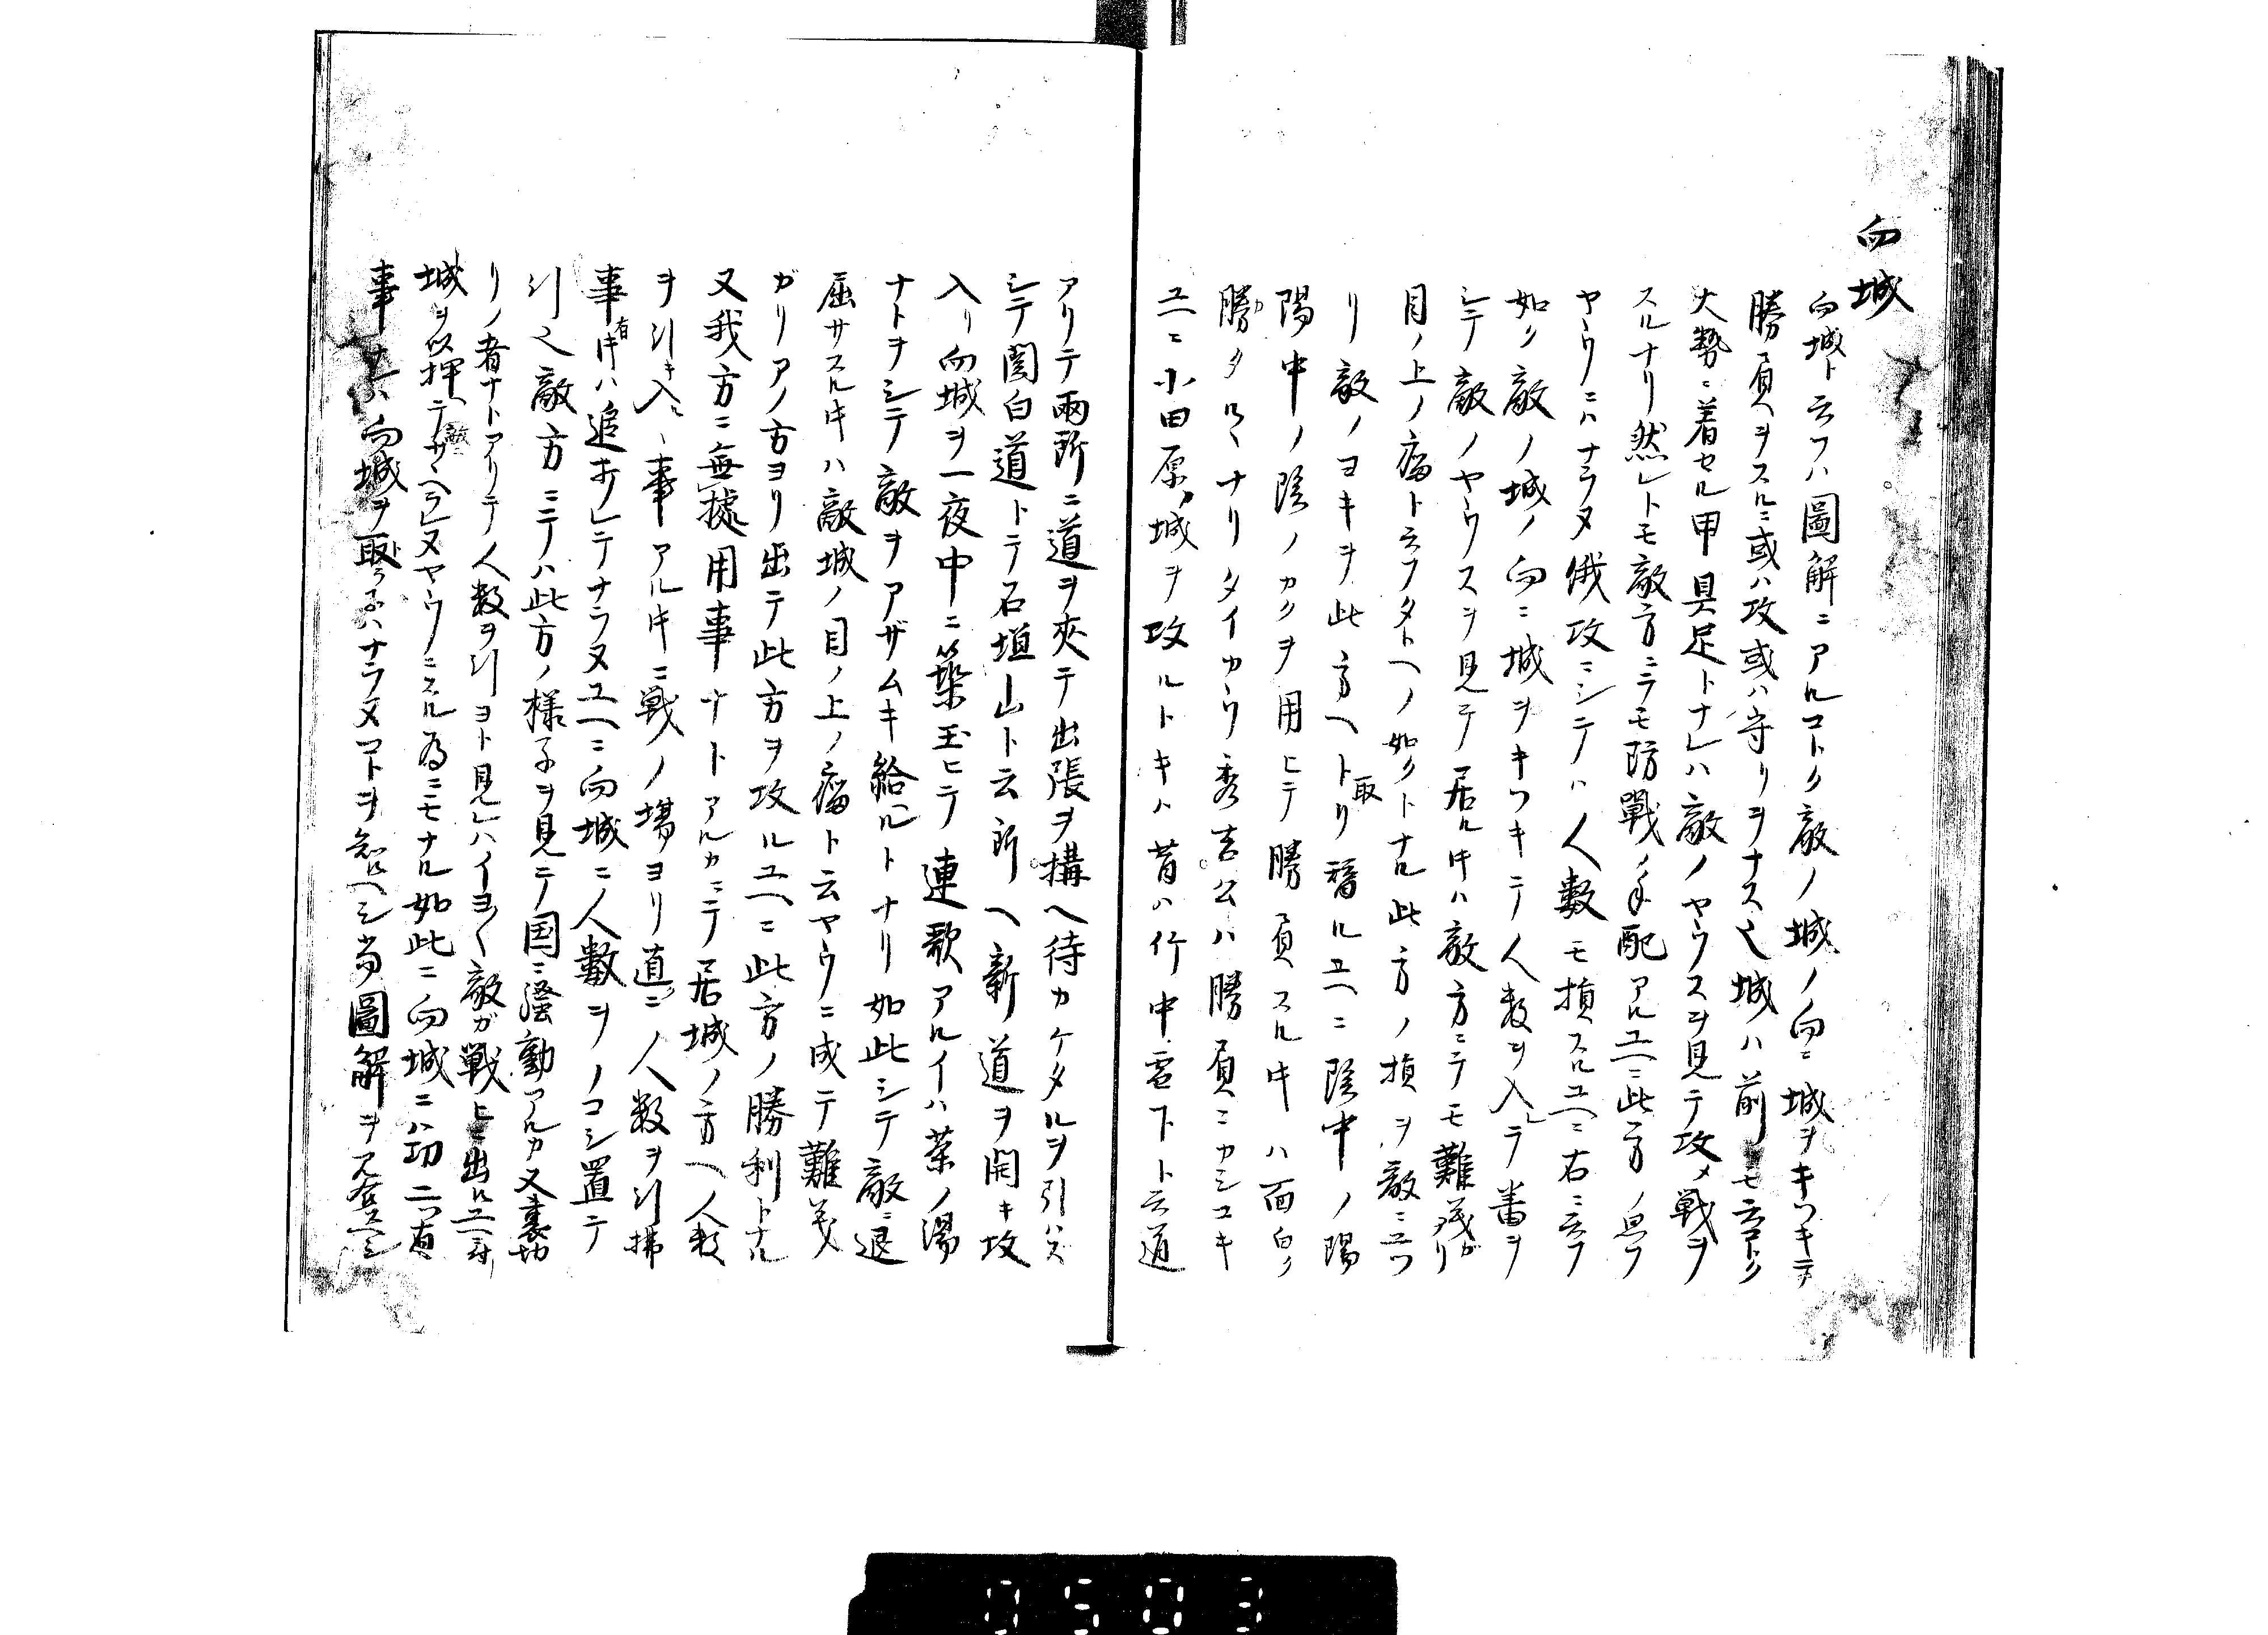 向城
向城ト云フハ圖解ニアルコトク敵ノ城ノ向ニ城ヲキツキテ
勝負ヲスルニ或ハ攻或ハ守リヲナス也城ハ前ニモ云コトク
大勢ニ着セル甲具足トナレハ敵ノヤウスヲ見テ攻メ戦ヲ
スルナリ然レトモ敵方ニテモ防戦ノ手配アルユヘニ此方ノ思フ
ヤウニハナラヌ俄攻ニシテハ人數モ損スルユヘニ右ニ云フ
如ク敵ノ城ノ向ニ城ヲキツキテ人数ヲ入レテ番ヲ
シテ敵ノヤウスヲ見テ居ル𪜈ハ敵方ニテモ難義ガリ
目ノ上ノ瘤ト云フタトヘノ如クトナル此方ノ損ヲ敵ニユツ
リ敵ノヨキヲ此方ヘトリ取福ルユヘニ陰中ノ陽
陽中ノ陰ノカクヲ用ヒテ勝負スル𪜈ハ面白ク
勝タルヽナリタイカウ秀吉公ハ勝負ニカシコキ
ユヘニ小田原ノ城ヲ攻ルトキハ昔ハ竹中雲下ト云道
アリテ兩所ニ道ヲ夾テ出張ヲ構ヘ待カケタルヲ引ハズ
シテ関白道トテ石垣山ト云所ヘ新道ヲ開キ攻
入リ向城ヲ一夜中ニ築玉ヒテ連歌アルイハ茶ノ湯
ナトヲシテ敵ヲアザムキ給ルトナリ如此シテ敵ニ退
屈サスル𪜈ハ敵城ノ目ノ上ノ瘤ト云ヤウニ成テ難義
ガリアノ方ヨリ出テ此方ヲ攻ルユヘニ此方ノ勝利トナル
又我方ニ無據用事ナトアルカニテ居城ノ方ヘ人数
ヲ引キ入ルヽ事アル𪜈ニ戦ノ場ヨリ直ニ人数ヲ引拂
事有𪜈ハ追ホレテナラヌユヘニ向城ニ人數ヲノコシ置テ
引也敵方ニテハ此方ノ様子ヲ見テ国ニ騒動アルカ又裏切
リノ者ナトアリテ人数ヲ引ヨト見レハイヨ〱敵ガ戦ヒニ出ルユヘ
城ヲ以押ヘテ敵ニサヘラレヌヤウニスル為ニモナル如此ニ向城ニハ功ニツ有
事ナレハ向城ヲ取ラ子ハナラヌコトヲ知ヘシ尚圖解ヲ見合スヘシ